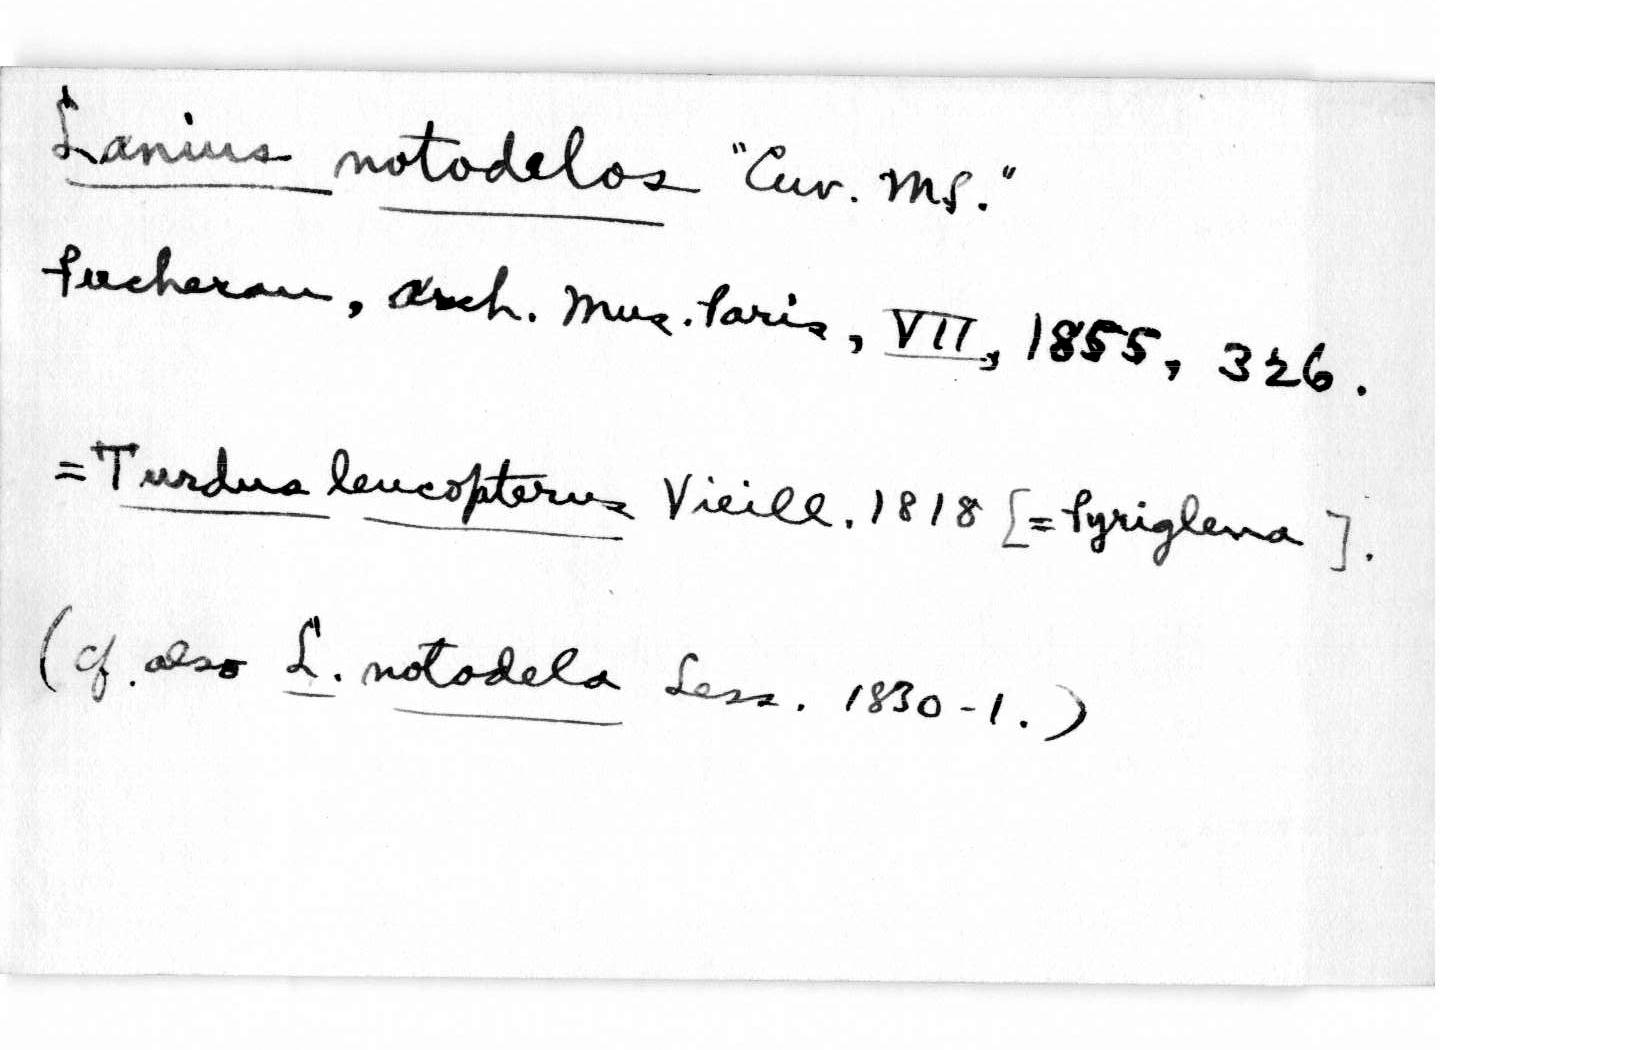 Lanius notodelos "Cuv. MS."
Pucheran, Arch. Mus. Paris, VII, 1855, 326.
=Turdus leucopterus Vieill. 1818 [=Pyriglena].
(cf. also L. notodela Less. 1830-1.)